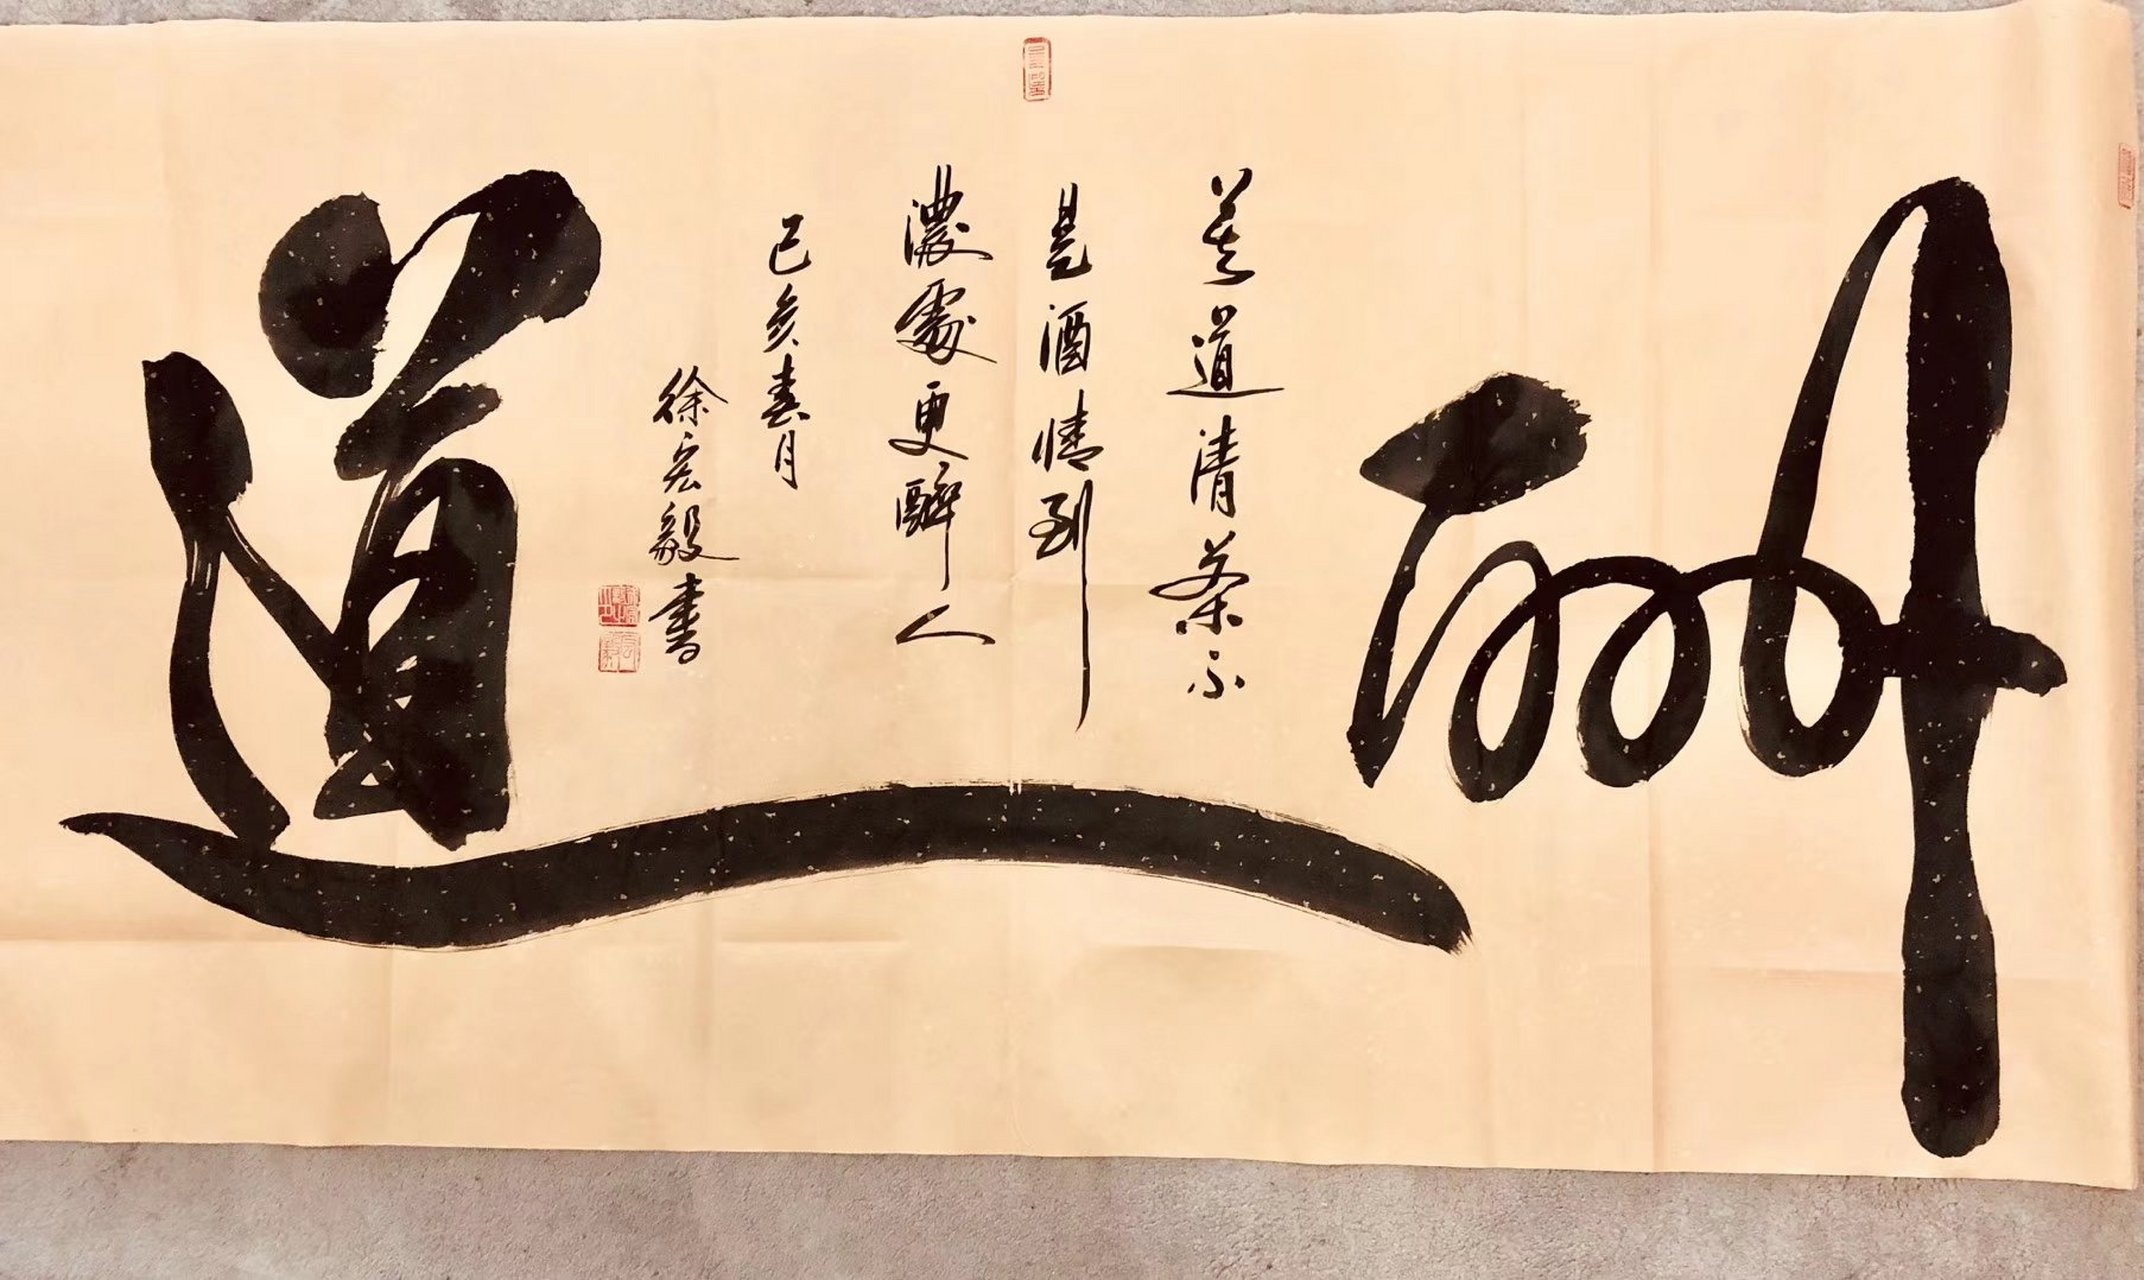 莫道清茶不
是酒情到
濃處更醉人
己亥春月
徐宏毅書
道